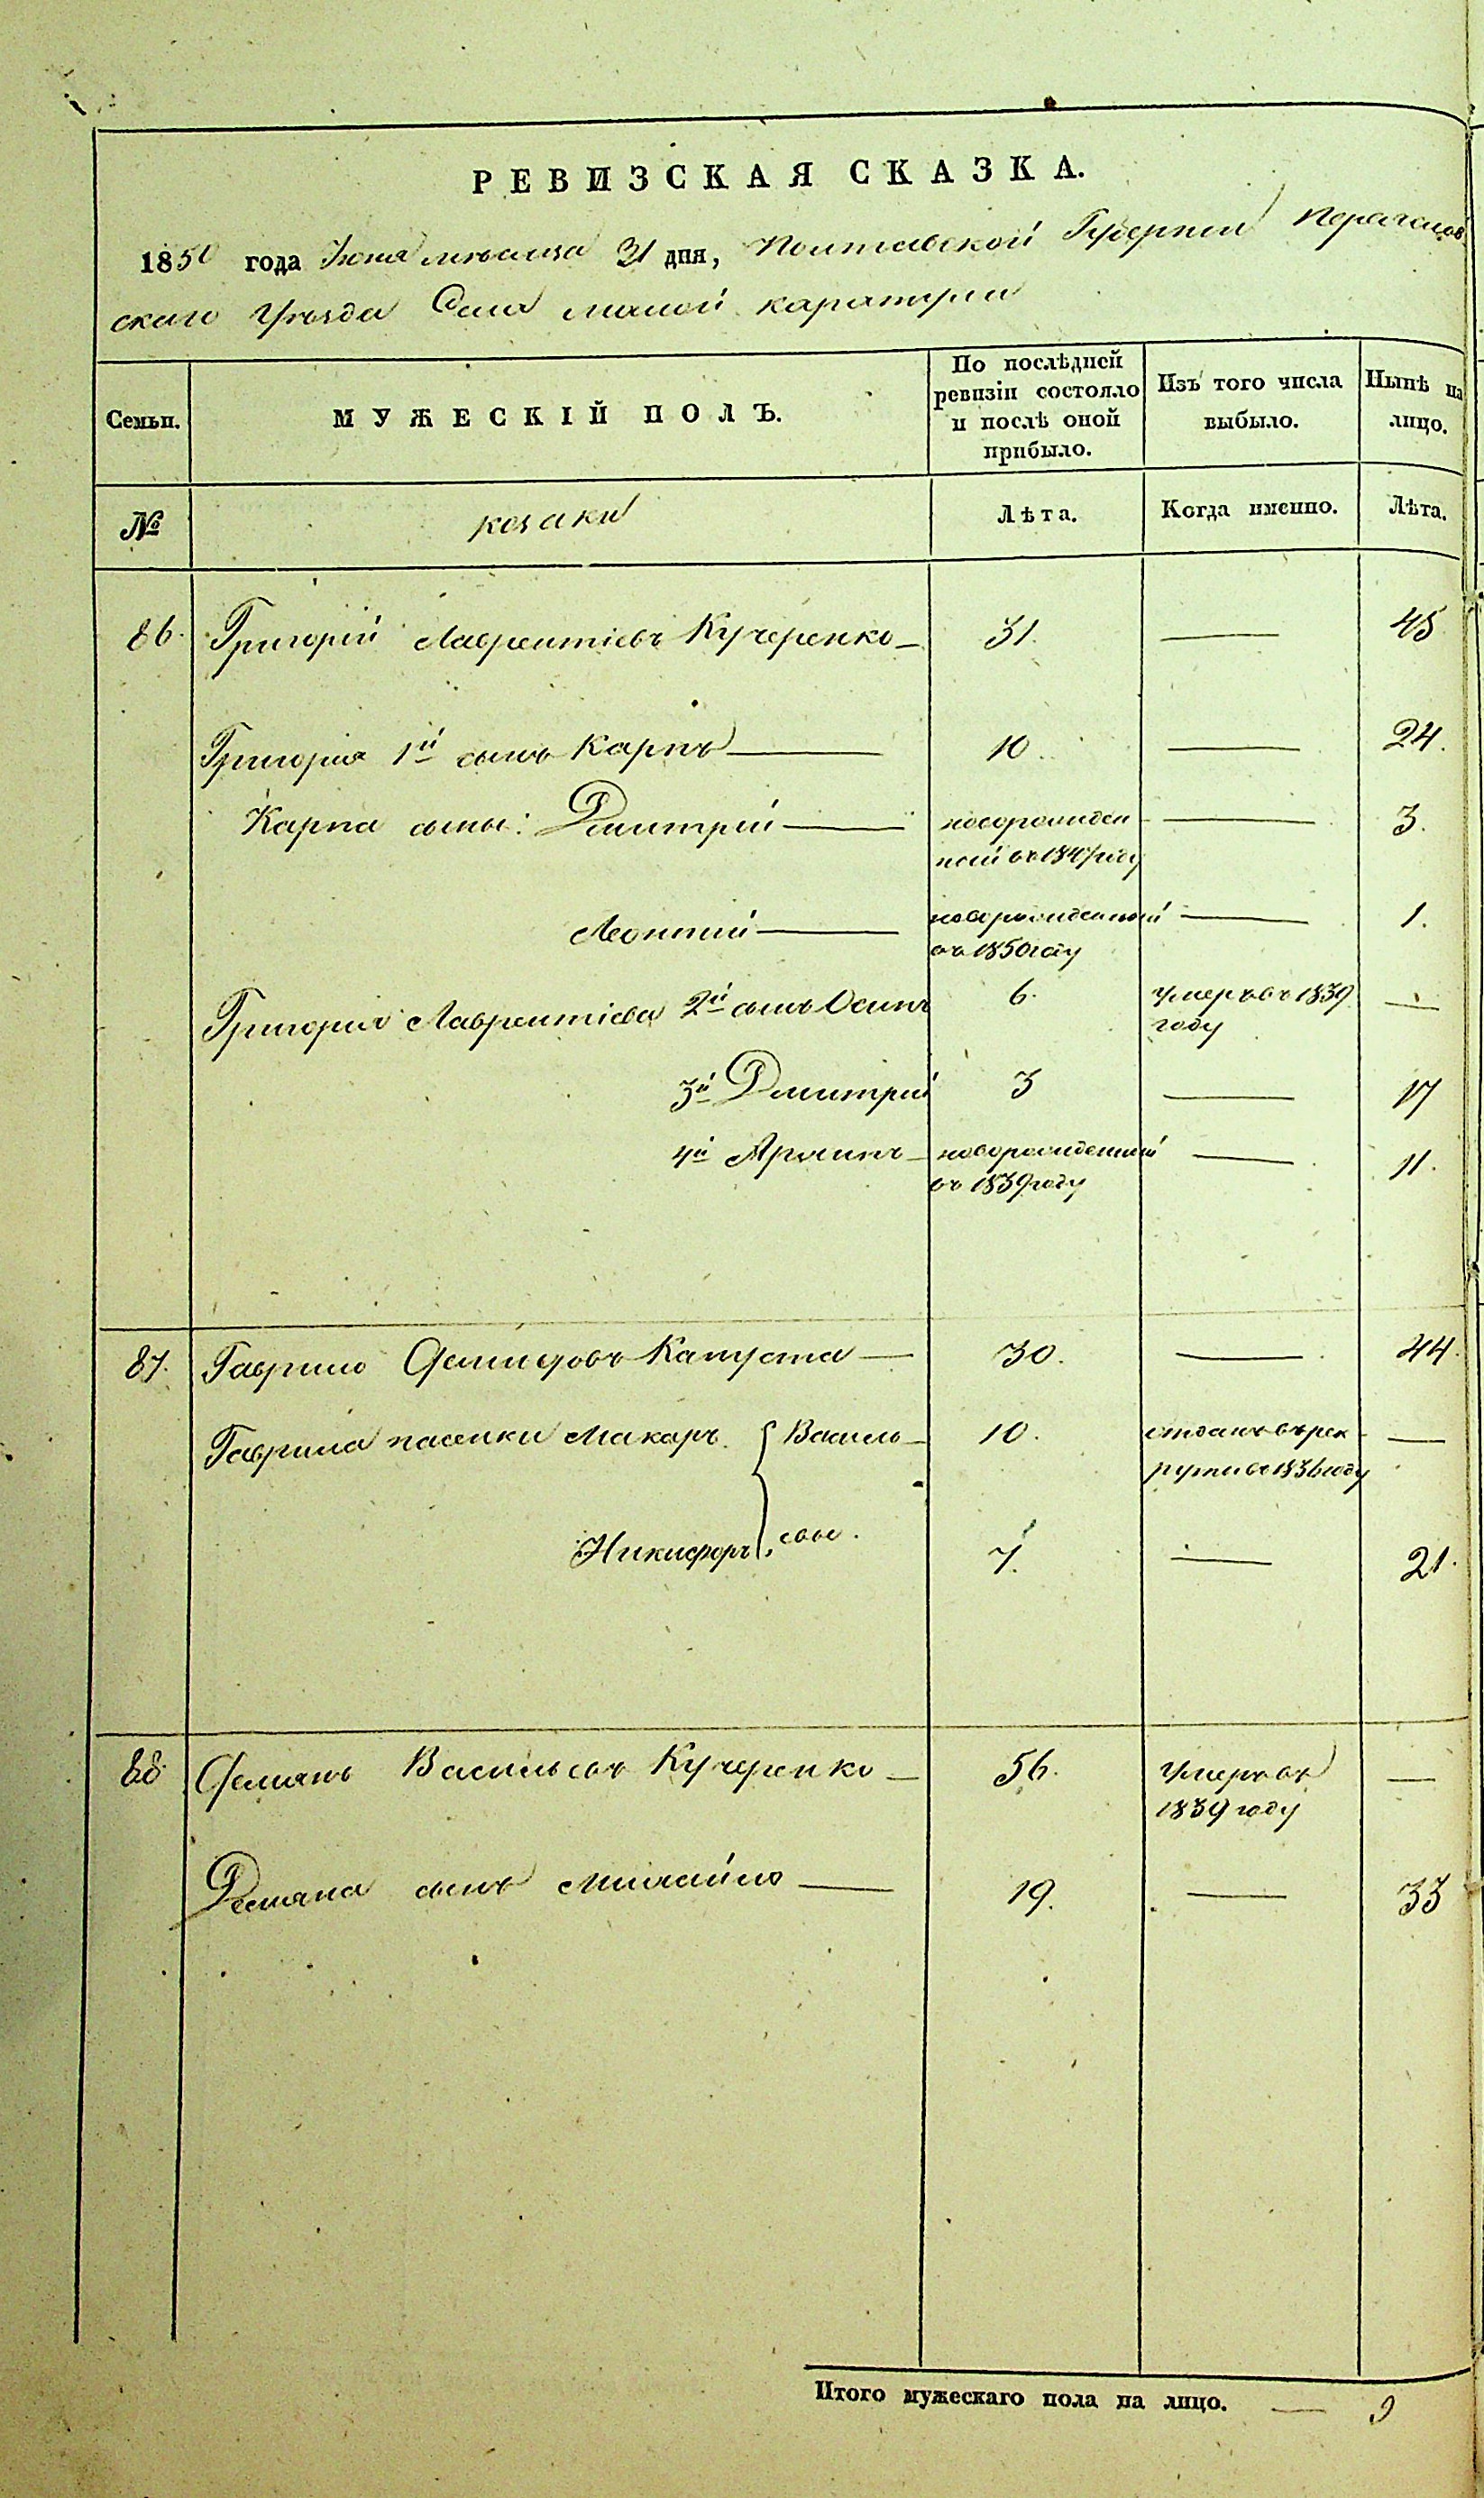 РЕВИЗСКАЯ СКАЗКА.
1850 года Іюня мѣсяца 31 дня, Полтавской Губерніи Переяслов
скаго Уѣзда Села малой каратули
Семьи.
МУЖЕСКІЙ ПОЛЪ.
По послѣдней ревизіи состояло и послѣ оной прибыло.
Изъ того числа выбыло.
Нынѣ на лицо.
№
козаки
Лѣта.
Когда именно.
Лѣта.
86. Григорій Лаврентіевъ Кучеренко 31. — 45
Григорія 1й сынъ Карпъ — 10. — 24.
Карпа сыны: Дмитрій — новорожден — 3.
ный въ 1847 году
Леонтій — новорожденный — 1.
въ 1850 году
Григорія Лаврентіева 2й сынъ Осипъ 6. умеръ въ 1839 —
году
3й Дмитрій 3 — 17
4й — новорожденный — 11.
въ 1839 году
87. Гаврило Демидовъ Капуста — 30. — 44.
Гаврила пасенки Макаръ { Василь 10. отданъ въ рек —
руты въ 1836 году
Никифоръ, евы. 7. — 21.
88 Демянъ Васильевъ Кучеренко — 56. Умеръ въ —
1839 году
Демяна сынъ Михайло — 19. — 33
Итого мужескаго пола на лицо. — 9